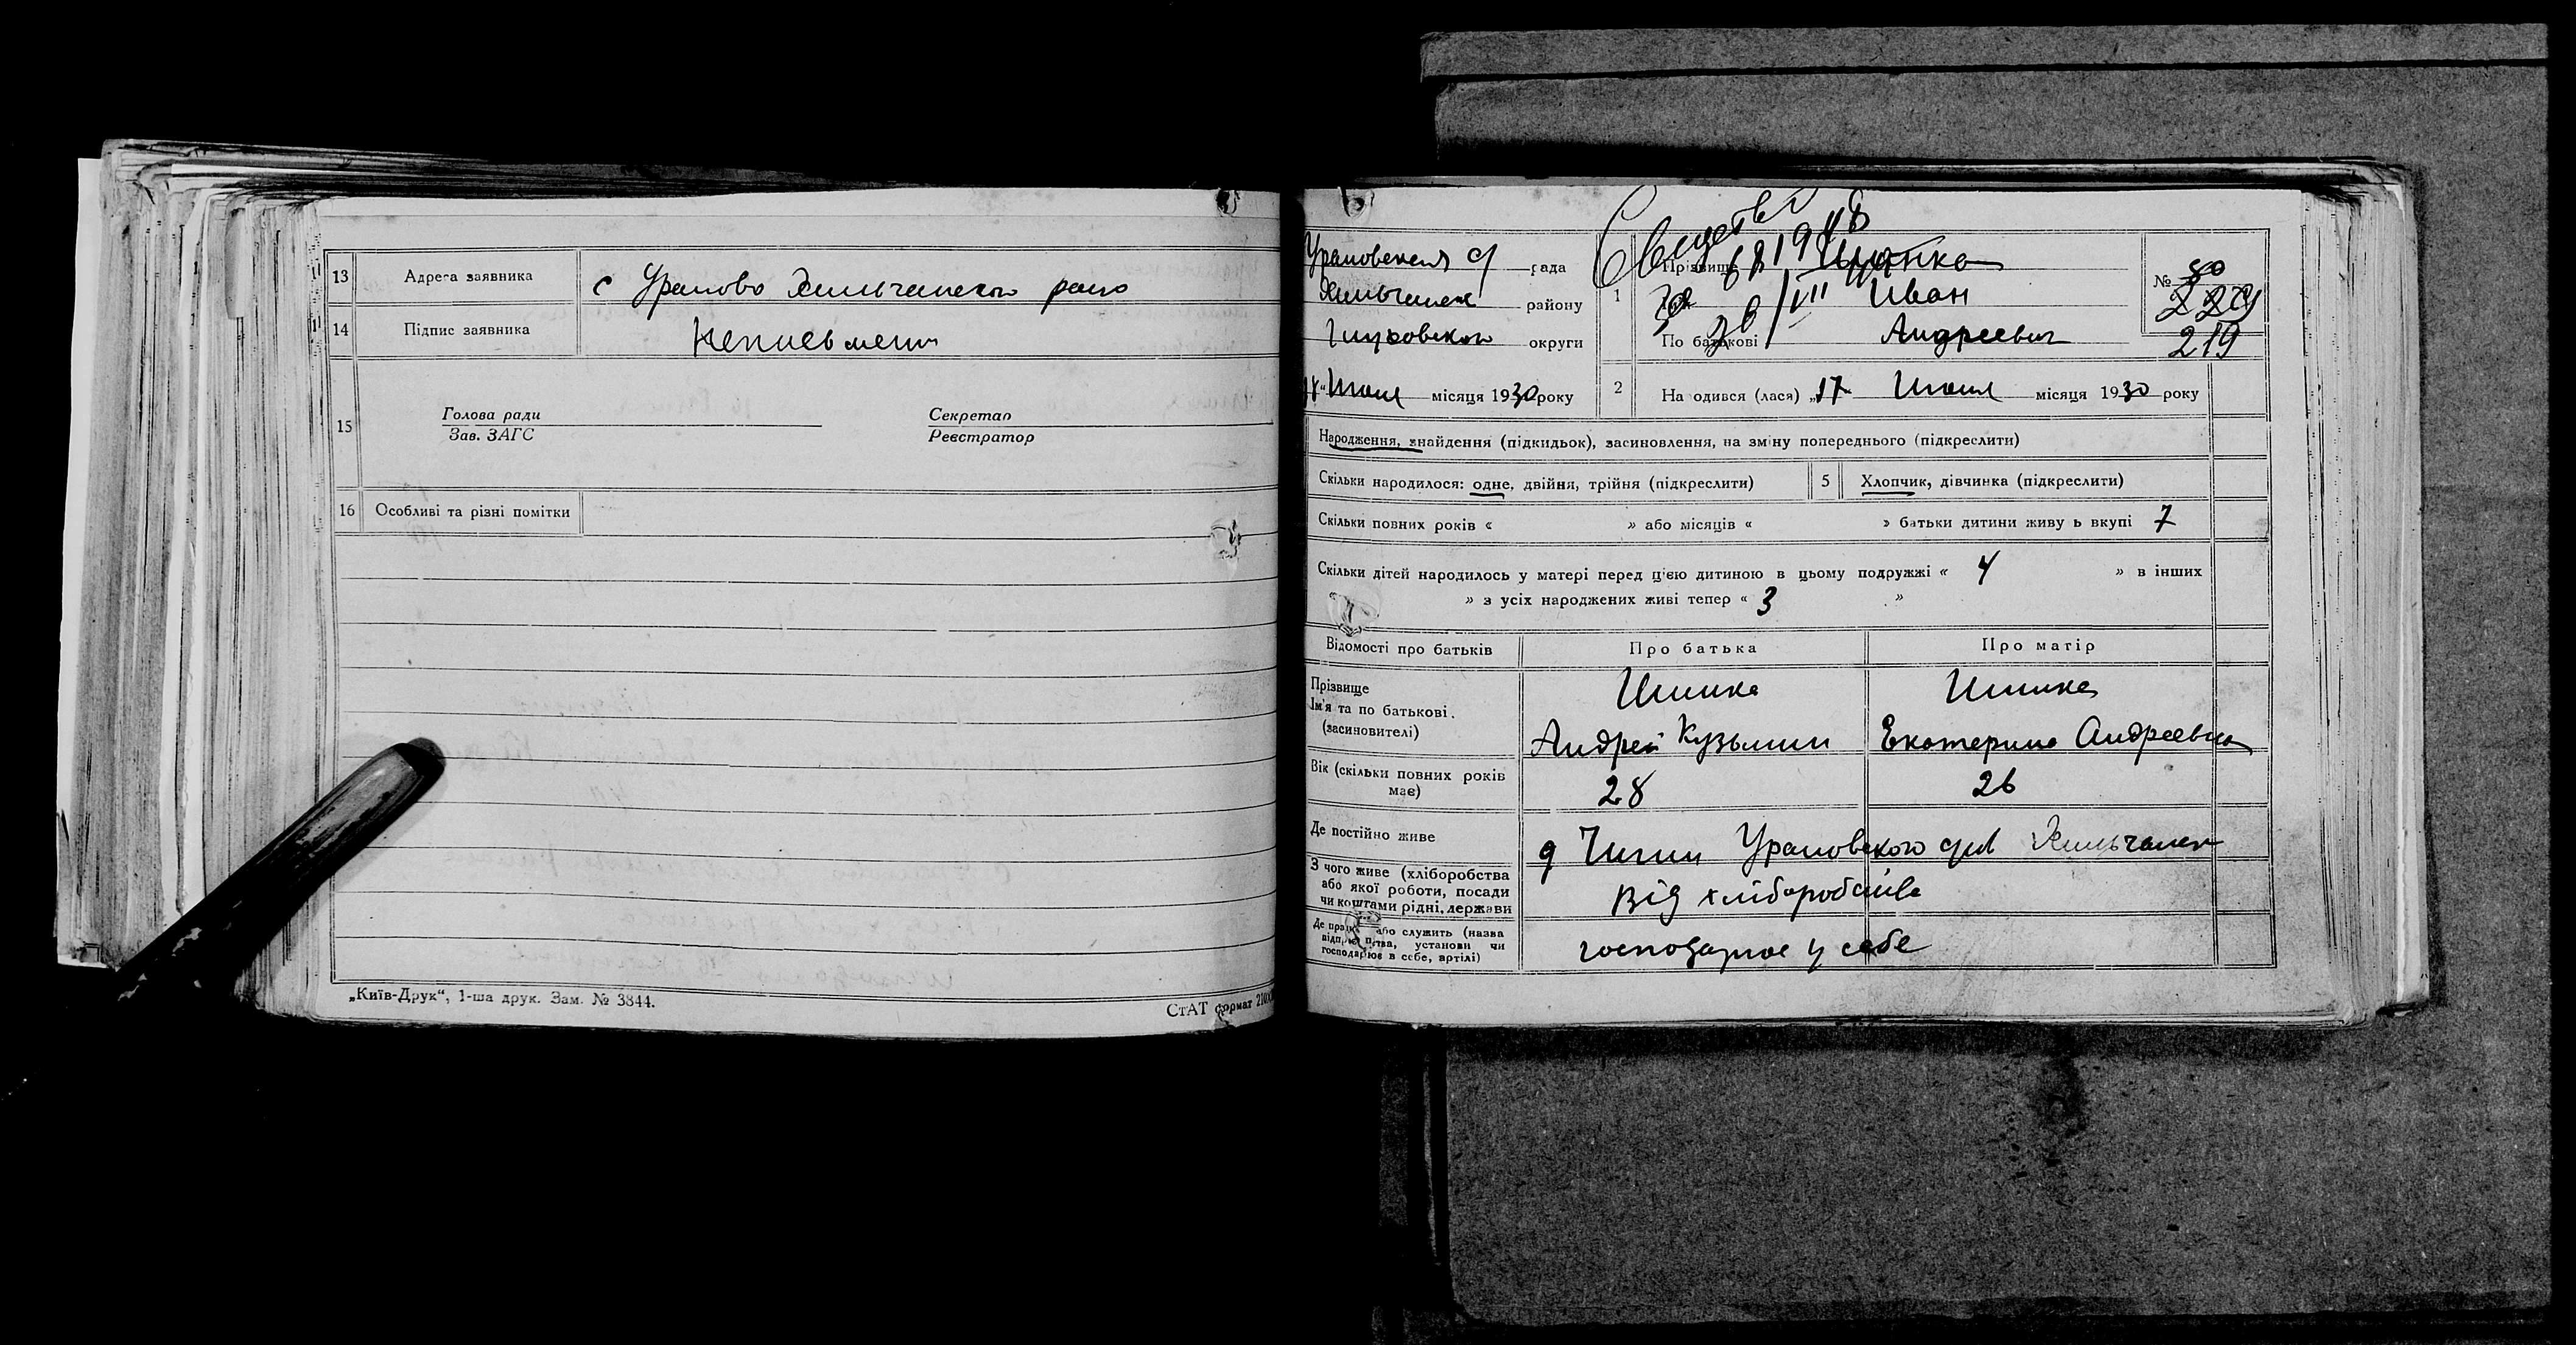 13 Адреса заявника с Уралово Хильчанского рано
14 Підпис заявника Неписьмени
15 Голова ради Секретар
Зав. ЗАГС Реєстратор
16 Особливі та різні помітки
„Київ-Друк“, 1-ша друк. Зам. № 3844.
СтАТ формат 210
Ураловская с/ рада
Хильчанск району
Глуховского округи
18 “ Июля місяця 1930 року
1 Прізвище
Иван
По батькові Андреевич
№ 80
229
219
2 На одився (лася) „17 Июля місяця 1930 року
Народження, знайдення (підкидьок), засиновлення, на зміну попереднього (підкреслити)
Скільки народилося: одне, двійня, трійня (підкреслити) 5 Хлопчик, дівчинка (підкреслити)
Скільки повних років « » або місяців « » батьки дитини живу ь вкупі 7
Скільки дітей народилось у матері перед цією дитиною в цьому подружжі « 4 » в інших
» з усіх народжених живі тепер « 3 »
Відомості про батьків Про батька Про матір
Прізвище
Ім'я та по батькові.
(засиновителі)
Андрей Кузьмин Екатерина Андреевна
Вік (скільки повних років має) 28 26
Де постійно живе Ураловского Хильчанск
З чого живе (хліборобства або якої роботи, посади чи коштами рідні, держави Від хліборобства
Де працює або служить (назва підприємства, установи чи господарює в себе, артілі) господарює у себе